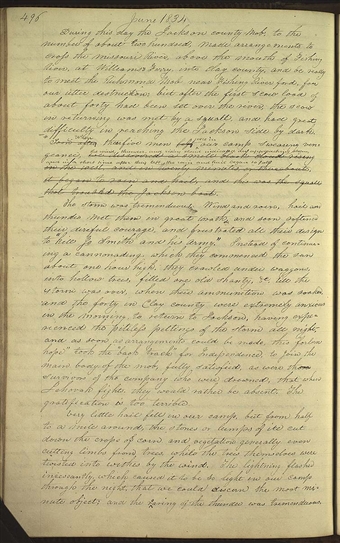 496 June 1834.
During this day the Jackson county Mob, to the
number of about two hundred, made arrangements to
cross the Missouri River, above the mouth of Fishing
River, at Williams Ferry, into Clay county, and be ready
to meet the Richmond Mob near Fishing River ford, for
our utter destruction; but after the first scow load of
about forty had been set over the river, the scow
in returning was met by a squall, and had great
difficulty in reaching the Jackson side by dark
When five men our camp swearing ven-
geance,
The storm was tremendous, Wind and rain, hail and
thunder met them in great wrath, and soon softened
their direful courage, and frustrated all their design
to "kill Jo Smith and his army." Instead of continu-
ing a cannonading, which they commenced the sun
about one hour high, they crawled under wagons
into hollow trees, filled one old shanty, &c. till the
storm was over, when their ammunition was soaked
and the forty in Clay county were extremely anxious
in the morning to return to Jackson, having expe-
rienced the pitiless peltings of the storm all night,
and as soon as arrangements could be made, this "forlorn
hope" took the "back track" for Independence to join the
main body of the mob, fully satisfied, as were those
survivors of the company who were drowned, that when
Jehovah fights they would rather be absent. The
gratification is too terrible.
Very little hail fell in our camp, but from half
to a mile around, the stones or lumps of ice cut
down the crops of corn and vegetation generally even
cutting limbs from trees while the trees themselves were
twisted into withes by the wind. The lightning flashed
incessantly, which caused it to be so light in our camp
through the night, that we could discern the most mi-
nute object; and the roaring of the thunder was tremendous.